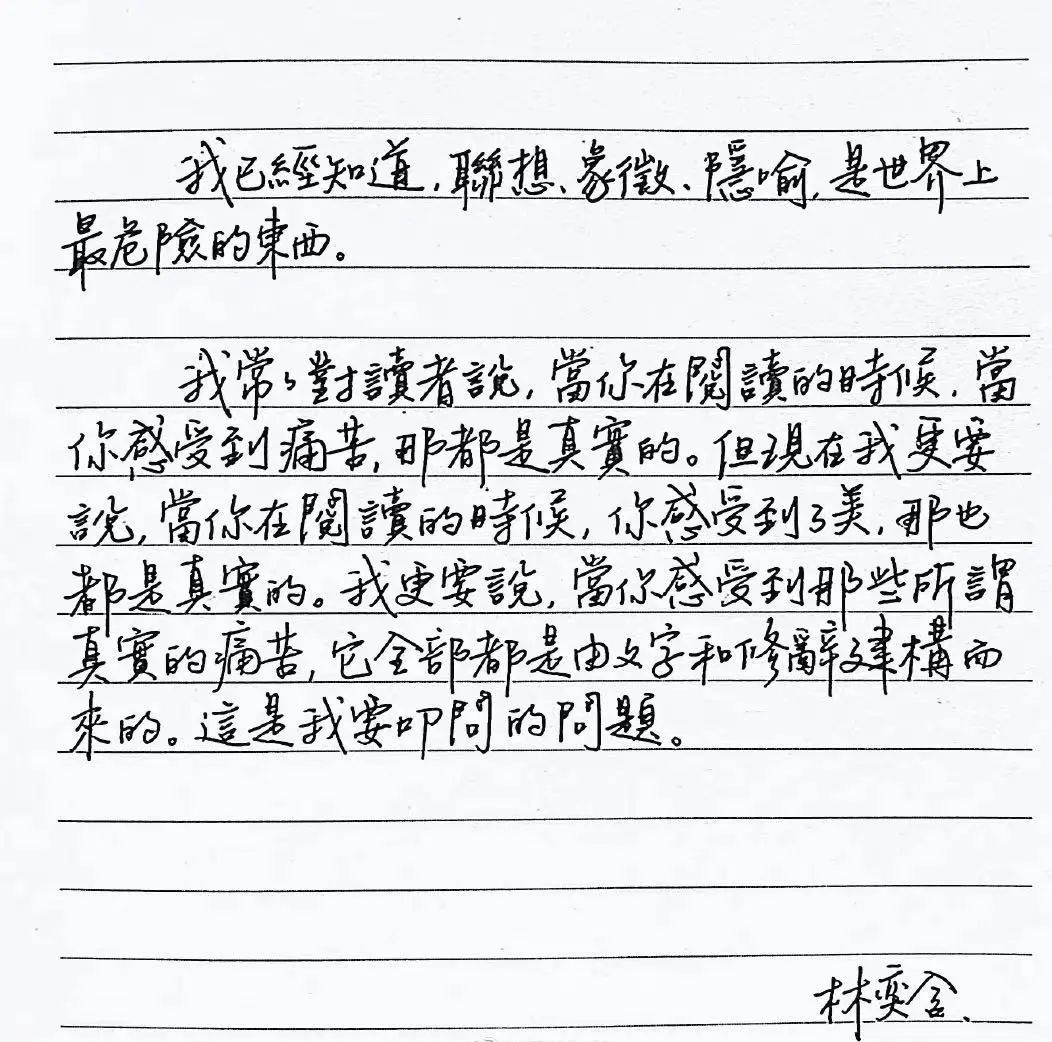 我已經知道，聯想、象徵、隱喻，是世界上
最危險的東西。
我常々對讀者說，當你在閱讀的時候，當
你感受到痛苦，那都是真實的。但現在我更要
說，當你在閱讀的時候，你感受到了美，那也
都是真實的。我更要說，當你感受到那些所謂
真實的痛苦，它全部都是由文字和修辭建構而
來的。這是我要叩問的問題。
林奕含、